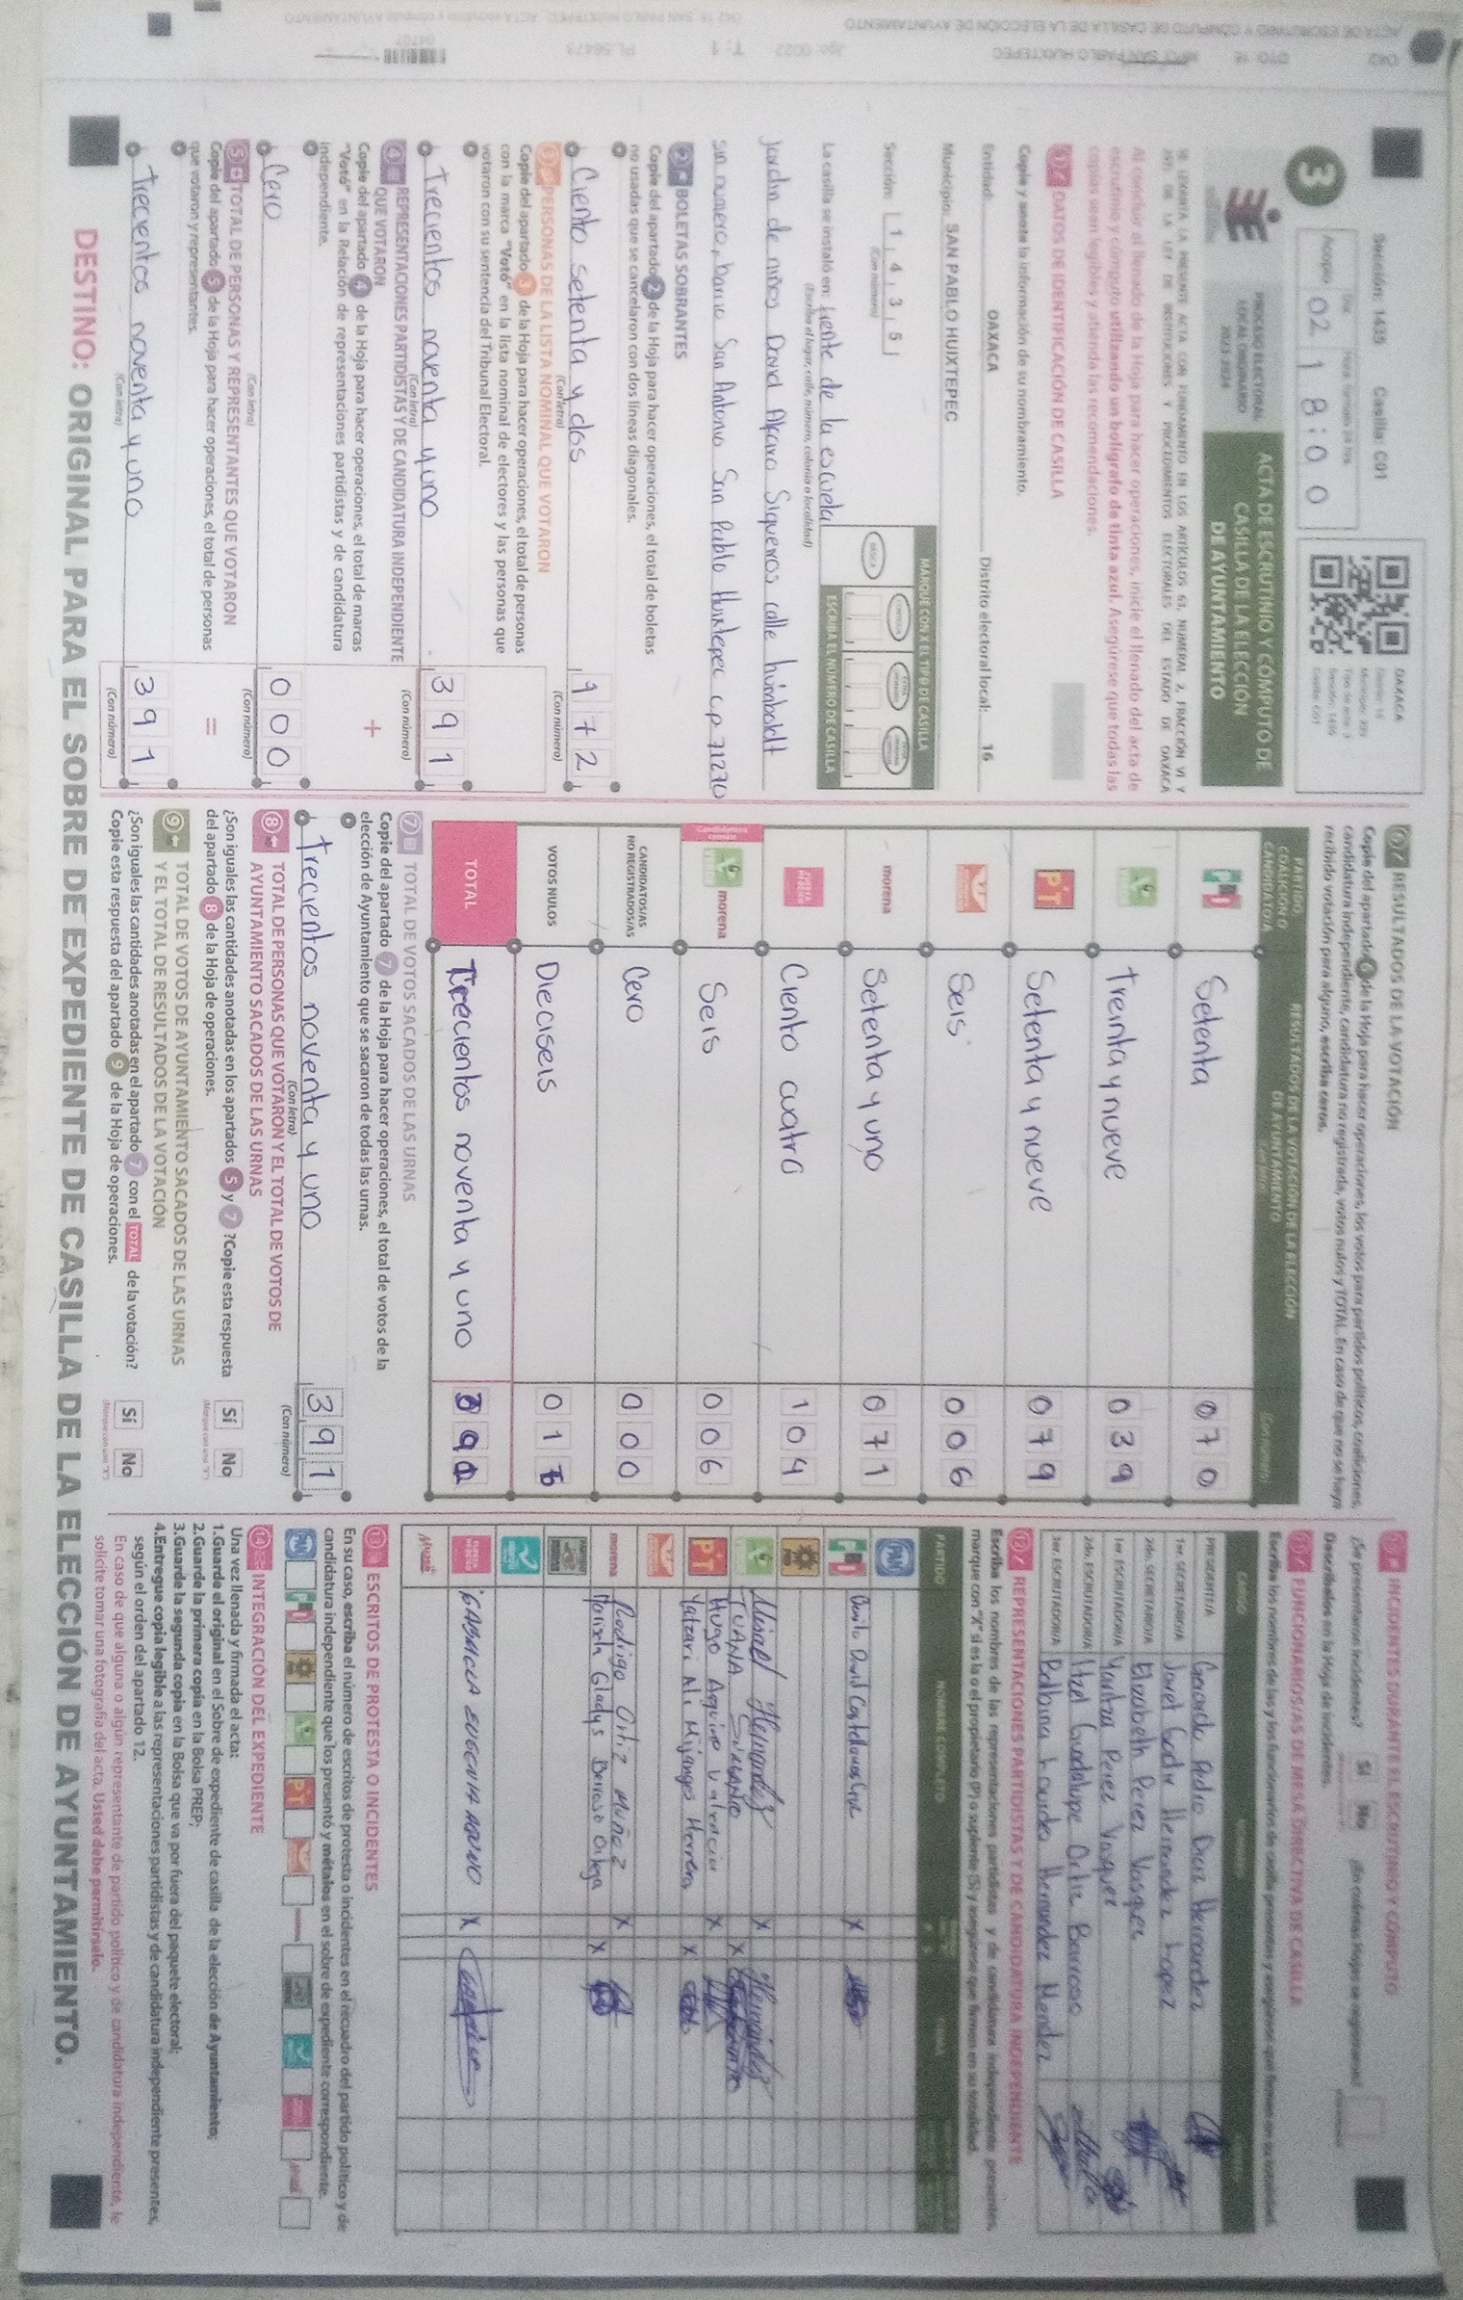 Sección: 1435 Casilla: C01
3
Acopio 02 18:00
PROCESO ELECTORAL
LOCAL ORDINARIO
2023-2024
ACTA DE ESCRUTINIO Y CÓMPUTO DE
CASILLA DE LA ELECCIÓN
DE AYUNTAMIENTO
OAXACA
SE LEVANTA LA PRESENTE ACTA CON FUNDAMENTO EN LOS ARTÍCULOS 63, NUMERAL 2, FRACCIÓN VI Y
DE LA LEY DE INSTITUCIONES Y PROCEDIMIENTOS ELECTORALES DEL ESTADO DE OAXACA
Al concluir el llenado de la Hoja para hacer operaciones, inicie el llenado del acta de
escrutinio y cómputo utilizando un bolígrafo de tinta azul. Asegúrese que todas las
copias sean legibles y atienda las recomendaciones.
1 DATOS DE IDENTIFICACIÓN DE CASILLA
Copie y anote la información de su nombramiento.
Entidad: OAXACA Distrito electoral local: 16
Municipio: SAN PABLO HUIXTEPEC
Sección: 1 4 3 5
(Con número)
MARQUE CON X EL TIPO DE CASILLA
BÁSICA
ESCRIBA EL NÚMERO DE CASILLA
La casilla se instaló en: frente de la escuela
(Escriba el lugar, calle, número, colonia o localidad)
jardin de niños David Alfaro Siqueiros calle humboldt
sin numero, barrio San Antonio San Pablo Huixtepec c.p. 71270
2 BOLETAS SOBRANTES
Copie del apartado 2 de la Hoja para hacer operaciones, el total de boletas
no usadas que se cancelaron con dos líneas diagonales.
Ciento setenta y dos 1 7 2
(Con letra) (Con número)
3 PERSONAS DE LA LISTA NOMINAL QUE VOTARON
Copie del apartado 3 de la Hoja para hacer operaciones, el total de personas
con la marca "Votó" en la lista nominal de electores y las personas que
votaron con su sentencia del Tribunal Electoral.
Trecientos noventa y uno 3 9 1
(Con letra) (Con número)
4 REPRESENTACIONES PARTIDISTAS Y DE CANDIDATURA INDEPENDIENTE
QUE VOTARON
Copie del apartado 4 de la Hoja para hacer operaciones, el total de marcas
"Votó" en la Relación de representaciones partidistas y de candidatura
independiente.
+
Cero 0 0 0
(Con letra) (Con número)
5 TOTAL DE PERSONAS Y REPRESENTANTES QUE VOTARON
Copie del apartado 5 de la Hoja para hacer operaciones, el total de personas
que votaron y representantes.
=
Trecientos noventa y uno 3 9 1
(Con letra) (Con número)
6 RESULTADOS DE LA VOTACIÓN
Copie del apartado 6 de la Hoja para hacer operaciones, los votos para partidos políticos, coaliciones,
candidatura independiente, candidatura no registrada, votos nulos y TOTAL. En caso de que no se haya
recibido votación para alguno, escriba ceros.
PARTIDO, COALICIÓN O CANDIDATO/A
RESULTADOS DE LA VOTACIÓN DE LA ELECCIÓN
DE AYUNTAMIENTO
PRI Setenta 0 7 0
Treinta y nueve 0 3 9
PT Setenta y nueve 0 7 9
Seis 0 0 6
morena Setenta y uno 0 7 1
Ciento cuatro 1 0 4
morena Seis 0 0 6
CANDIDATOS/AS NO REGISTRADOS/AS Cero 0 0 0
VOTOS NULOS Dieciseis 0 1 6
TOTAL Trecientos noventa y uno 3 9 1
7 TOTAL DE VOTOS SACADOS DE LAS URNAS
Copie del apartado 7 de la Hoja para hacer operaciones, el total de votos de la
elección de Ayuntamiento que se sacaron de todas las urnas.
Trecientos noventa y uno 3 9 1
(Con letra) (Con número)
8 TOTAL DE PERSONAS QUE VOTARON Y EL TOTAL DE VOTOS DE
AYUNTAMIENTO SACADOS DE LAS URNAS
¿Son iguales las cantidades anotadas en los apartados 5 y 7? Copie esta respuesta
del apartado 8 de la Hoja de operaciones. Sí No
9 TOTAL DE VOTOS DE AYUNTAMIENTO SACADOS DE LAS URNAS
Y EL TOTAL DE RESULTADOS DE LA VOTACIÓN
¿Son iguales las cantidades anotadas en el apartado 7 con el TOTAL de la votación?
Copie esta respuesta del apartado 9 de la Hoja de operaciones. Sí No
INCIDENTES DURANTE EL ESCRUTINIO Y CÓMPUTO
¿Se presentaron incidentes? Sí No
Descríbalos en la Hoja de incidentes.
FUNCIONARIOS/AS DE MESA DIRECTIVA DE CASILLA
CARGO
PRESIDENTE/A Gerardo Pedro Diaz Hernandez
1er. SECRETARIO/A Janet Hernandez Lopez
2do. SECRETARIO/A Elizabeth Perez Vasquez
1er ESCRUTADOR/A Yaritza Perez Vasquez
2do. ESCRUTADOR/A Itzel Guadalupe Ortiz Barroso
3er ESCRUTADOR/A Balbina Lourdes Hernandez Mendez
12 REPRESENTACIONES PARTIDISTAS Y DE CANDIDATURA INDEPENDIENTE
Escriba los nombres de las representaciones partidistas y de candidatura independiente presentes,
marque con "X" si es la o el propietario (P) o suplente (S) y asegúrese que firmen en su totalidad.
PARTIDO NOMBRE COMPLETO FIRMA
PAN
PRI Danilo David Castellanos Cruz X
Misael Hernandez X
JUANA X
PT Hugo Aquino Valencia X
Yatzari Ali Mijangos Herrera X
morena Rodrigo Ortiz Muñoz X
Gladys Barroso Ortega X
GABRIELA EUGENIA X
Mujer
13 ESCRITOS DE PROTESTA O INCIDENTES
En su caso, escriba el número de escritos de protesta o incidentes en el recuadro del partido político y de
candidatura independiente que los presentó y métalos en el sobre de expediente correspondiente.
14 INTEGRACIÓN DEL EXPEDIENTE
Una vez llenada y firmada el acta:
1.Guarde el original en el Sobre de expediente de casilla de la elección de Ayuntamiento;
2.Guarde la primera copia en la Bolsa PREP;
3.Guarde la segunda copia en la Bolsa que va por fuera del paquete electoral;
4.Entregue copia legible a las representaciones partidistas y de candidatura independiente presentes,
según el orden del apartado 12.
En caso de que alguna o algún representante de partido político y de candidatura independiente, le
solicite tomar una fotografía del acta. Usted debe permitírselo.
DESTINO: ORIGINAL PARA EL SOBRE DE EXPEDIENTE DE CASILLA DE LA ELECCIÓN DE AYUNTAMIENTO.